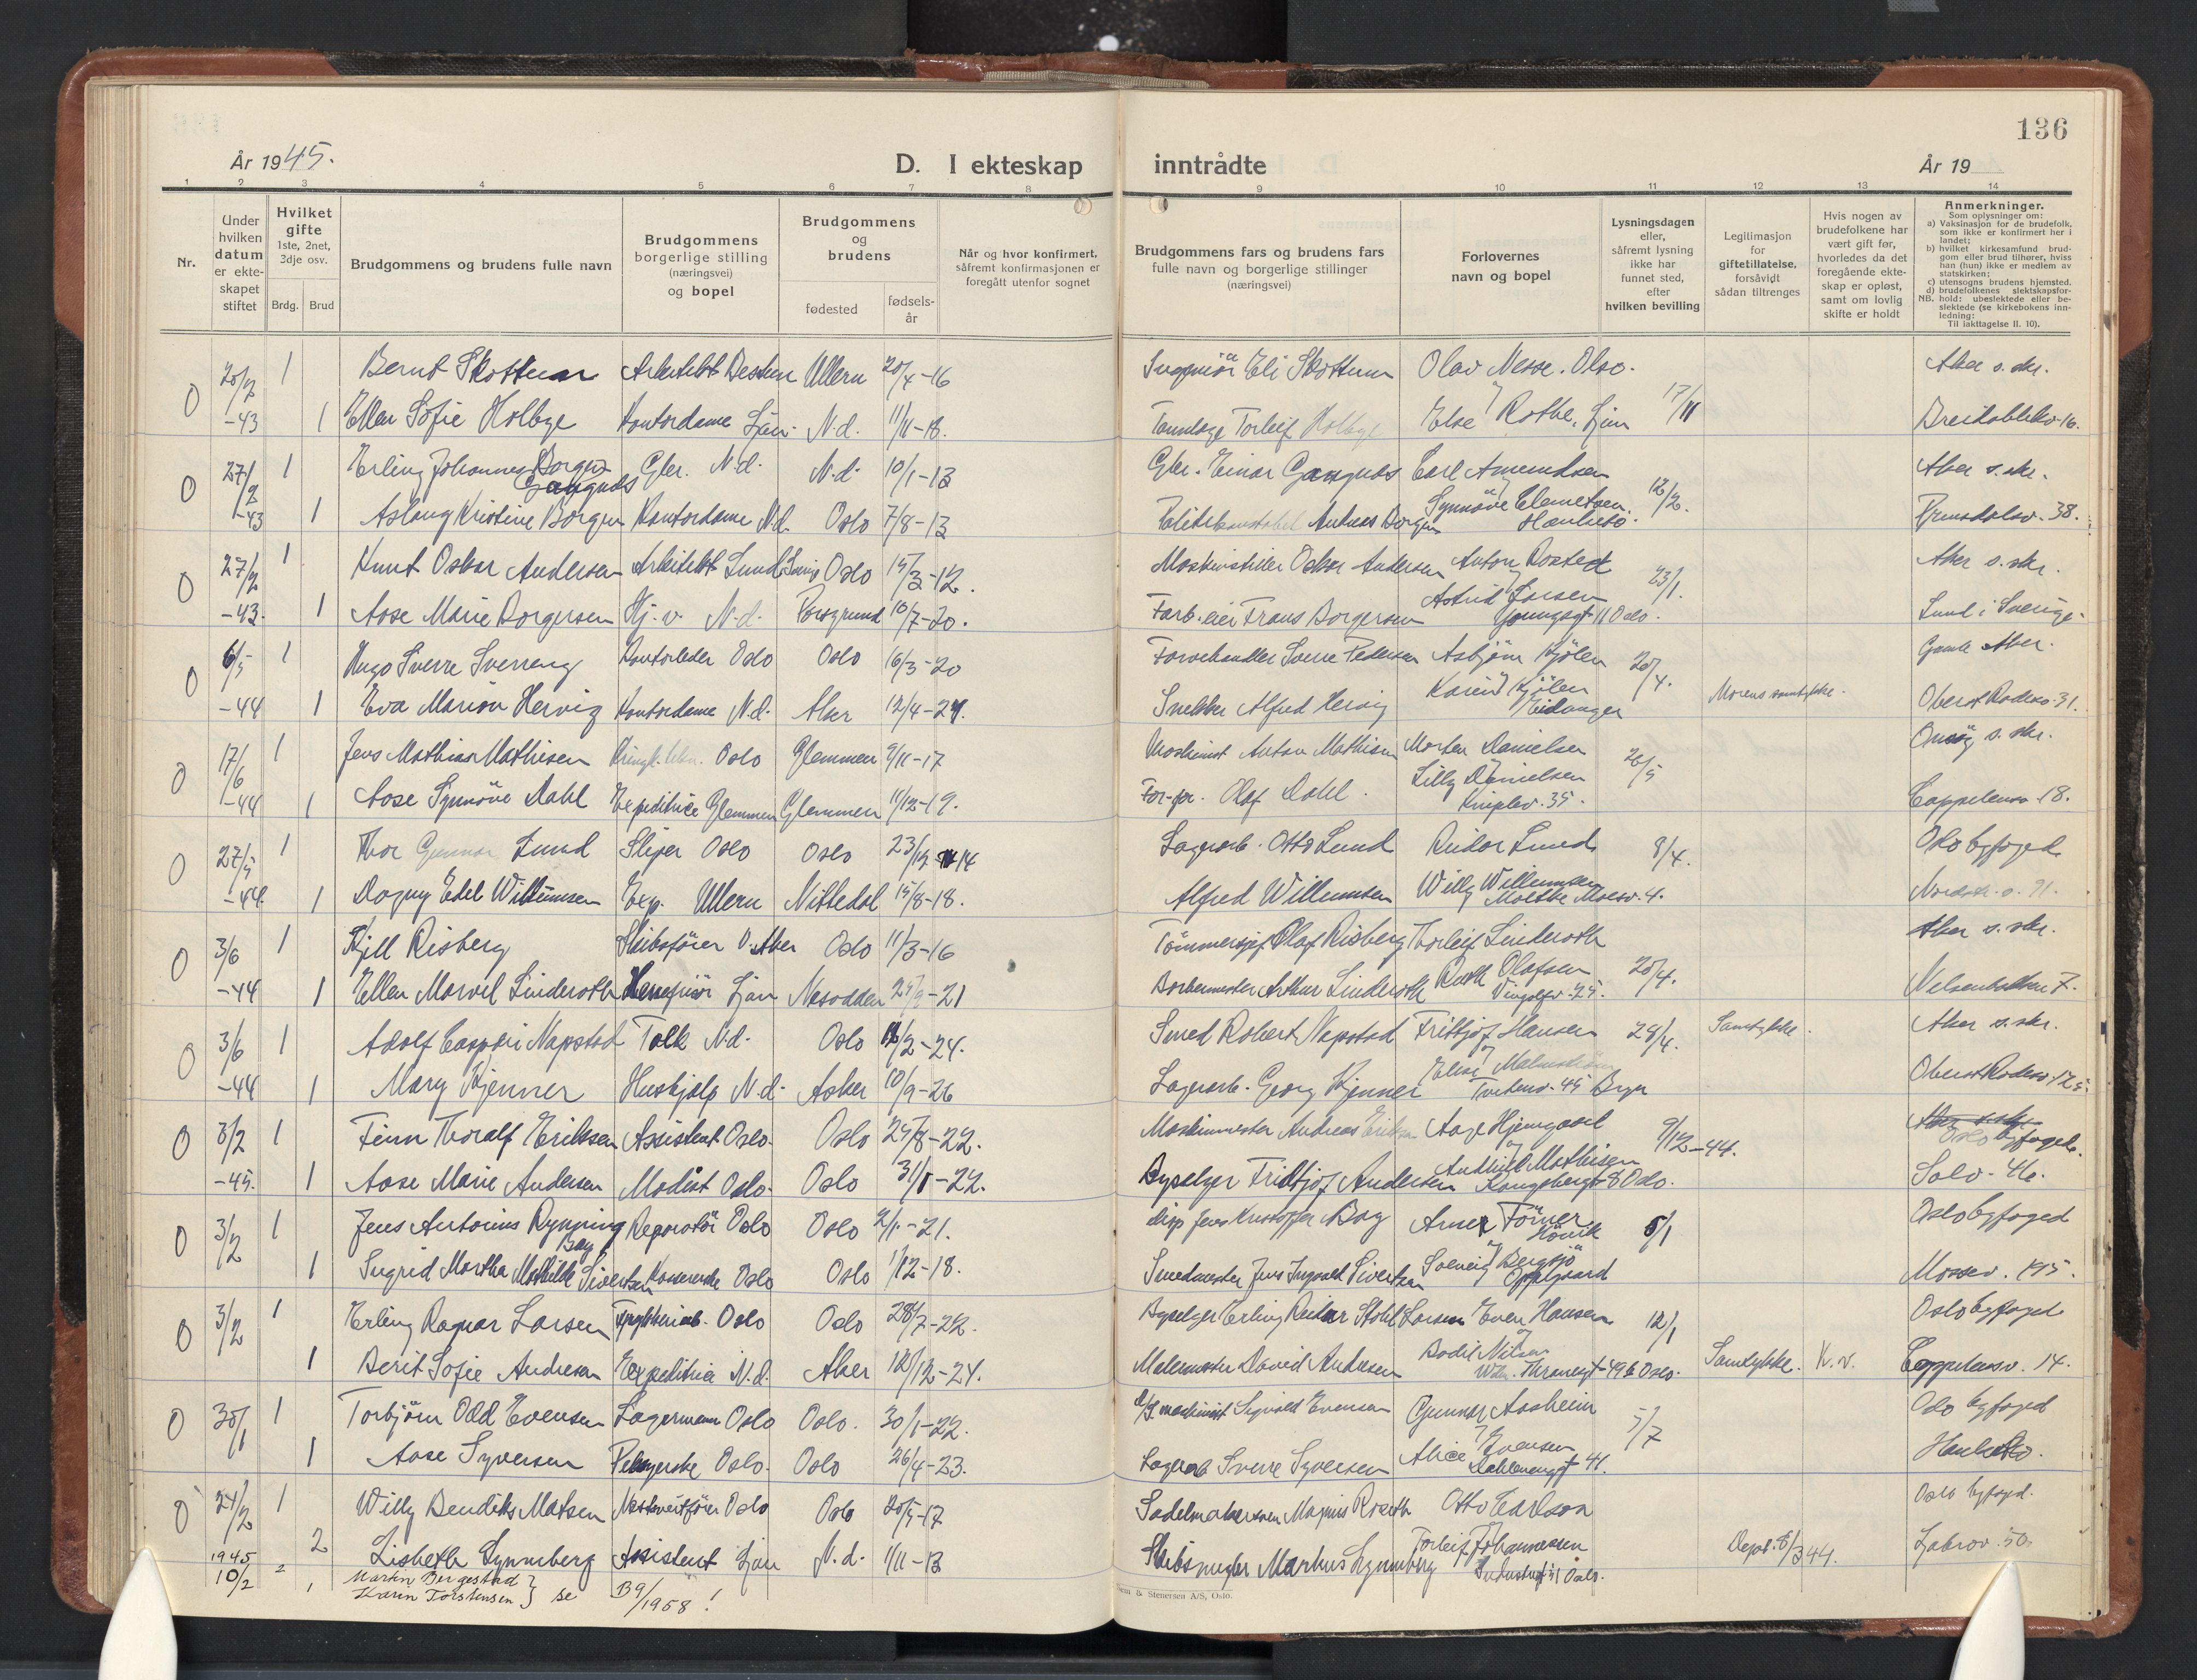 136
År 1945.
D. I ekteskap inntrådte
År 19
1 2 3 4 5 6 7 8 9 10 11 12 13 14
Nr.
Under hvilken datum er ekteskapet stiftet
Hvilket gifte 1ste, 2net, 3dje osv.
Brdg. Brud
Brudgommens og brudens fulle navn
Brudgommens borgerlige stilling (næringsvei) og bopel
Brudgommens og brudens
fødested
fødsels-år
Når og hvor konfirmert, såfremt konfirmasjonen er foregått utenfor sognet
Brudgommens fars og brudens fars fulle navn og borgerlige stillinger (næringsvei)
Forlovernes navn og bopel
Lysningsdagen eller, såfremt lysning ikke har funnet sted, efter hvilken bevilling
Legitimasjon for giftetillatelse, forsåvidt sådan tiltrenges
Hvis nogen av brudefolkene har vært gift før, hvorledes da det foregående ekteskap er opløst, samt om lovlig skifte er holdt
Anmerkninger.
Som oplysninger om:
a) Vaksinasjon for de brudefolk, som ikke er konfirmert her i landet;
b) hvilket kirkesamfund brudgom eller brud tilhører, hviss han (hun) ikke er medlem av statskirken;
c) utensogns brudens hjemsted.
d) brudefolkenes slektskapsforhold: ubeslektede eller beslektede (se kirkebokens innledning:
NB. Til iakttagelse II. 10).
0 20/2 1 Bernt Skottun Arkitekt Ullern 20/4-16 Eli Skottun Olav Nesse. Oslo. Aker s. skr.
-43 1 Ellen Sofie Holbye Kontordame Ljan. N.d. 11/11-18. Torleif Holbye Else Rothe, Ljan 17/11
0 27/2 1 Erling Johannes Borgen Gangnæs Gbr. N.d. N.d. 10/1-13 Gbr. Einar Gangnæs Carl Amundsen Aker s. skr.
-43 1 Aslaug Kristine Borgen Kontordame N.d. Oslo 7/8-13 Andreas Borgen Synnøve Clemetsen. Hauketo. 12/2.
0 27/2 1 Knut Oskar Andersen Arkitekt Lund, Sverige Oslo 15/3-12. Oskar Andersen Anton Rosted Aker s. skr.
-43. 1 Aase Marie Borgersen Hj. v. N.d. Porsgrund 10/7-20. Frans Borgersen Astrid Larsen Youngsgt 11 Oslo. 23/1. Lund i Sverige.
0 6/5 1 Hugo Sverre Sverreng Kontorleder Oslo Oslo 16/3-20 Sverre Pedersen Asbjørn Kjølen Gamle Aker.
-44 1 Eva Marion Hervig Kontordame N.d. Aker 12/4-24. Snekker Alfred Hervig Karin Kjølen Eidanger 20/4. Morens samtykke. Oberst Rodesv. 31.
0 17/6 1 Jens Mathias Mathisen Oslo Glemmen 9/11-17 Maskinist Anton Mathisen Morten Danielsen Onsøy s. skr.
-44 1 Aase Synnøve Dahl Expeditrice Glemmen Glemmen 11/12-19. Olaf Dahl. Lilly Danielsen 35. Cappelensv. 18.
0 27/5 1 Thor Gunnar Lund Sliper Oslo Oslo 23/12-14 Lagerarb. Otto Lund Reidar Lund 8/4. Oslo byfoged
-44 1 Dagny Edel Willumsen Exp. Ullern Nittedal 15/8-18. Alfred Willumsen Willy Willumsen Moltke Moesv. 4. 91.
0 3/6 1 Kjell Risberg Skibsfører V. Aker Oslo 11/3-16 Olaf Risberg Thorleif Linderoth Aker s. skr.
-44 1 Ellen Marvel Linderoth Ljan Nesodden 25/9-21 Arthur Linderoth Ruth Olafsen 20/4. Nelsenbakken 7.
0 3/6 1 Adolf Caspari Napstad Tolk N.d. Oslo /2-24. Smed Robert Napstad Fritjof Hansen 28/4. Samtykke. Aker s. skr.
-44 1 Mary Kjenner Hushjelp N.d. Asker 10/9-26 Lagerarb. Georg Kjenner Tvetenv. 45 Bryn Oberst Rodesv.
0 3/2 1 Finn Thoralf Eriksen Assistent Oslo. Oslo 25/8-22. Maskinmester Andreas Eriksen Aage Hjemgaard 9/12-44. Oslo byfoged.
-45. 1 Aase Marie Andersen Modist Oslo. Oslo 31/1-22. Byselger Fridtjof Andersen Mathisen Kongsberggt 8 Oslo. Solv. 46.
0 3/2 1 Jens Antonius Rynning Bay Reparatør Oslo Oslo 2/1-21. Disp Jens Kristoffer Bay Arne Tørner Høvik 5/1 Oslo byfoged
1 Ingrid Martha Mathilde Sivertsen Oslo Oslo 1/12-18. Smedmester Jens Ingvald Sivertsen Solveig Bergsjø Oppegaard Mossev.
0 3/2 1 Erling Ragnar Larsen Oslo Oslo 28/7-22. Byselger Erling Reidar Stahl Larsen Even Hansen 12/1 Oslo byfoged
1 Berit Sofie Andresen Expeditrice N.d. Aker /12-24. Malermester David Andresen Bodil Nilsen Thranesgt 49b Oslo. Samtykke. K.v. Cappelensv. 14.
0 30/1 1 Torbjørn Odd Evensen Lagermann Oslo Oslo. 30/1-22. Sigvald Evensen Gunnar Aasheim 5/7 Oslo byfoged
1 Aase Syversen Pelssyerske Oslo. Oslo 26/4-23. Lagerarb Sverre Syversen Alice Evensen Dahlenengt 41. Hauketo.
0 24/2 1 Willy Bendiks Matsen Oslo Oslo 20/5-17 Magnus Otto Carlson Oslo byfoged.
2 Lisbeth Lynneberg Assistent Ljan N.d. 1/11-13 Markus Lynneberg Torleif Johannessen Oslo. Dept. 8/3 44. Ljabrov. 50.
1945 10/2 2 1 Martin Bergestad Karin Torstensen } se B9/1958!
& Stenersen A/S, Oslo.